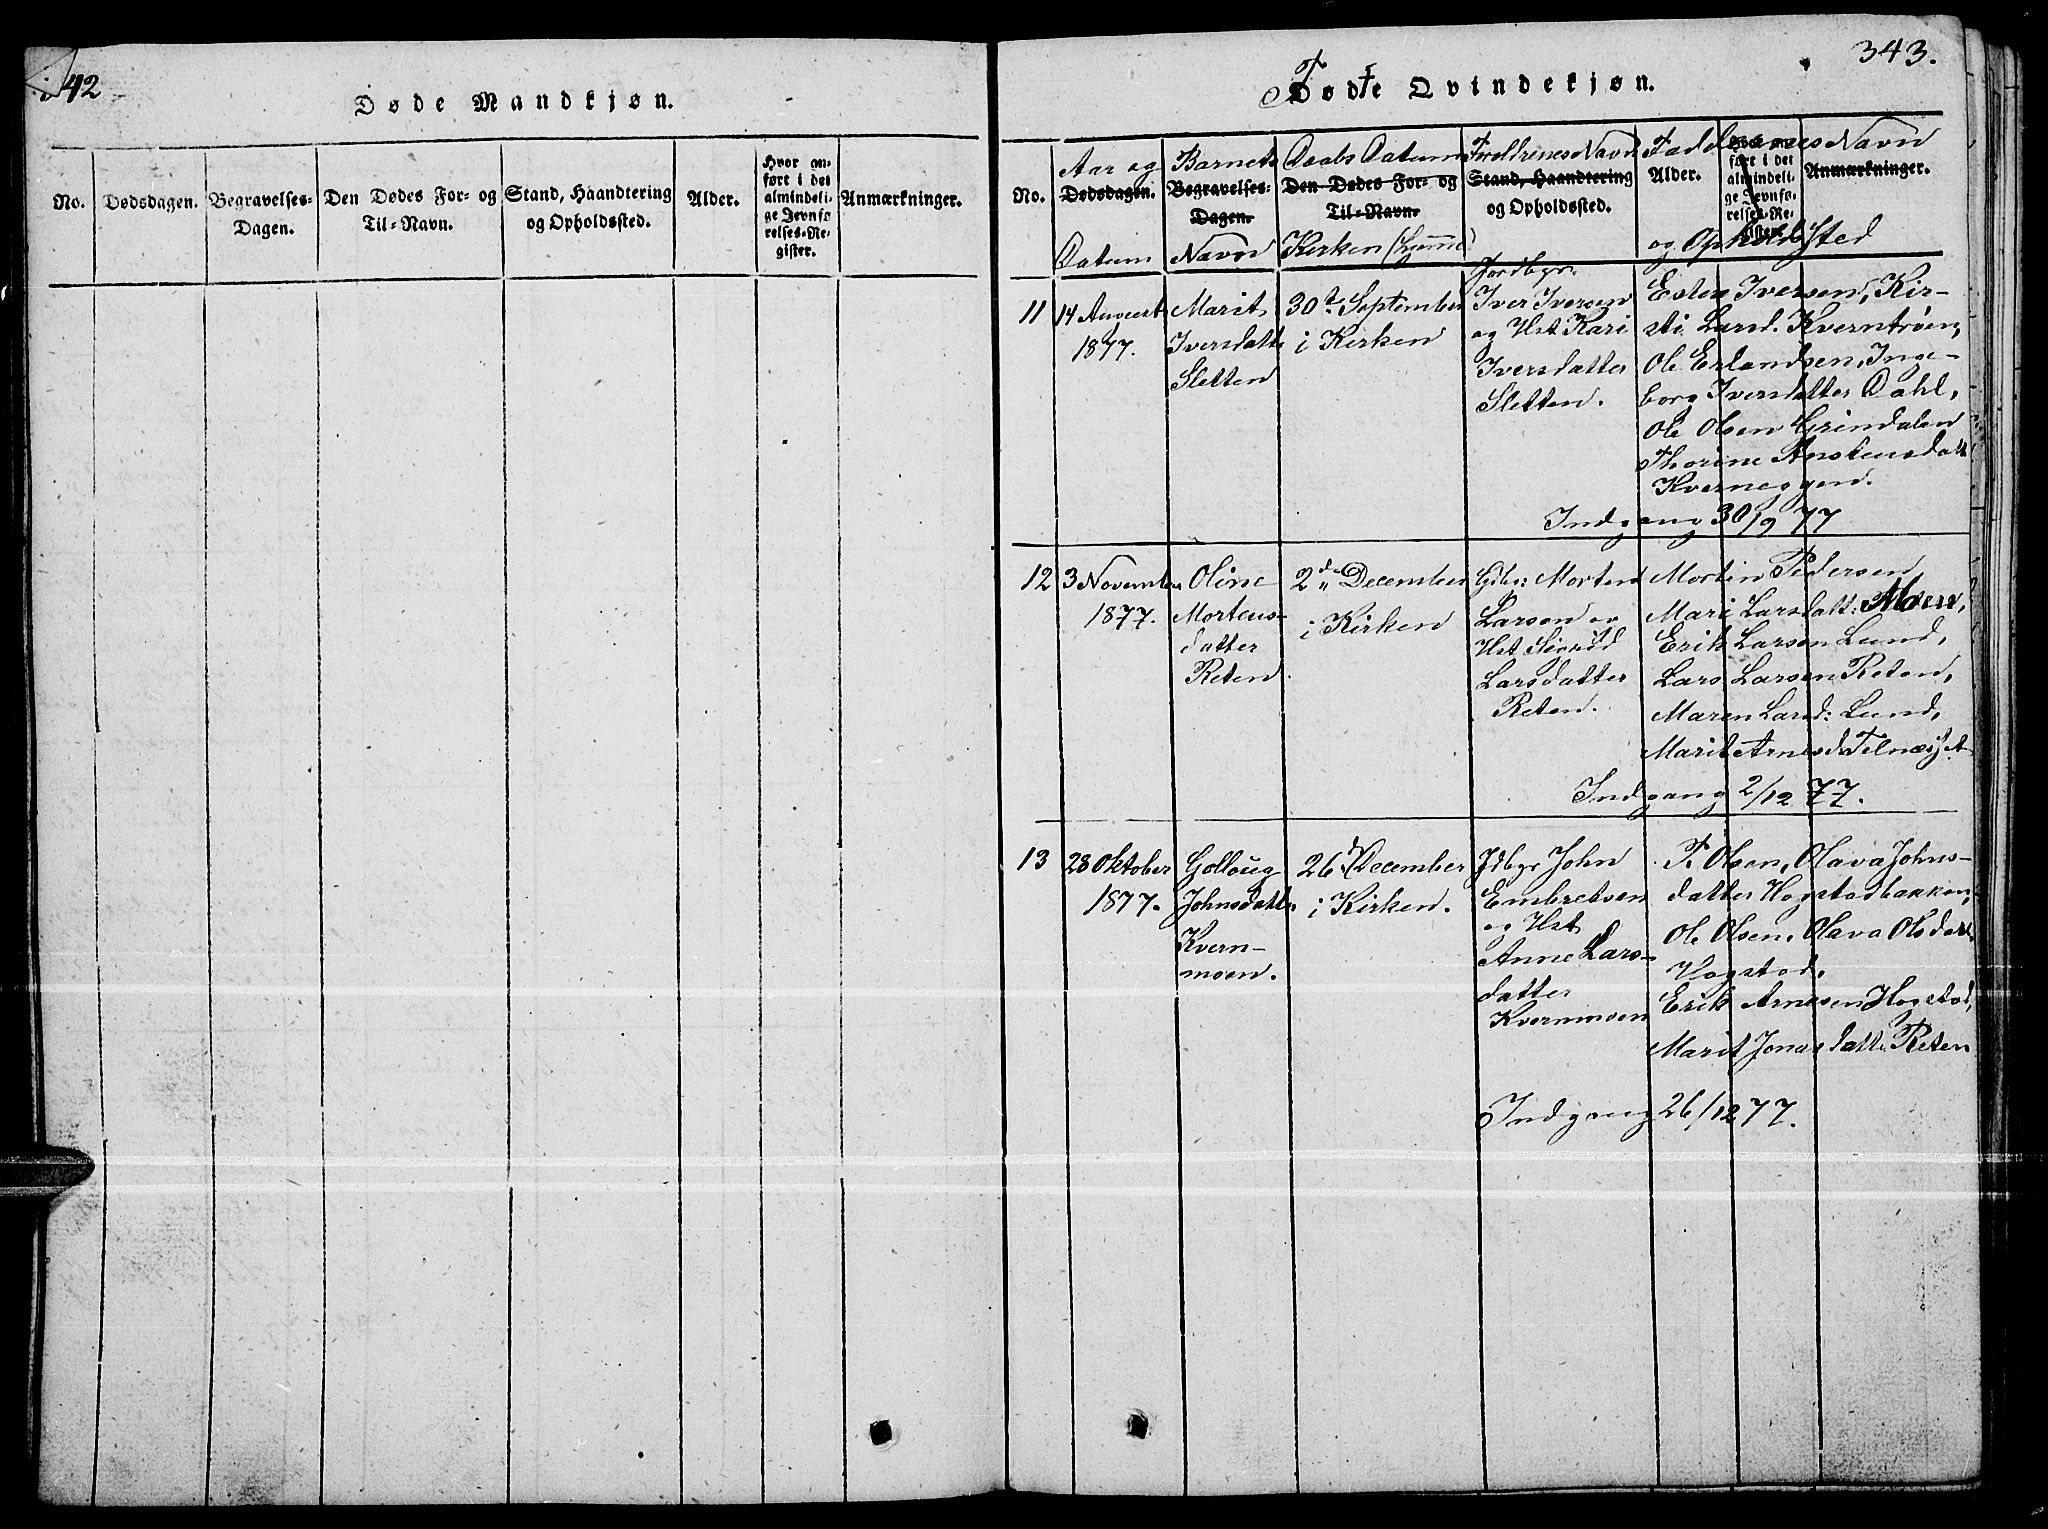 42
Døde Mandkjøn.
No.
Dødsdagen.
Begravelses-
Dagen.
Den Dødes For- og
Til-Navn.
Stand, Haandtering
og Opholdssted.
Alder.
Hvor an-
ført i det
almindeli-
ge Jevnfø-
relses-Re-
gister.
Anmærkninger.
343.
Fødte Qvindekjøn.
No.
Aar og
Dødsdagen.
Datum
Barnets
Begravelses-
Dagen.
Navn
Daabs Datum
Den Dødes For- og
Til-Navn.
Kirken
Forældrenes Navn
Stand, Haandtering
og Opholdssted.
Faddernes Navn
Alder.
ført i det
almindeli-
ge Jevnfø-
relses-Re-
gister.
Anmærkninger.
og Ophold Sted
11
14 August
1877.
Marit
Iversdatt
Sletten
30te September
i Kirken
Jordbgr.
Iver Iversen
og Hst Kari
Iversdatter
Sletten.
Esten Iversen, Kir-
sti Larsd. Kverntrøen,
Ole Erlandsen, Inge-
borg Iversdatter Dahl,
Ole Olsen Grindalen
Thorine Anstensdatt
Kverneggen.
Indgang 30/9 77
12
3 November
1877.
Oline
Mortens-
datter
Reten.
2den December
i Kirken
Gbr: Morten
Larsen og
Hst Sigrid
Larsdatter
Reten.
Mortin Pedersen
Mari Larsdatt: Moen,
Erik Larsen Lund,
Lars Larsen Reten,
Maren Larsd: Lund,
Marit Arnesd
Indgang 2/12 77.
13
28 Oktober
1877.
Golloug
Johnsdatter
Kvern-
moen.
26 December
i Kirken.
Jdbgr John
Embretsen
og Hst
Anne Lars-
datter
Kvernmoen
P. Olsen, Olava Johns-
datter Hogstadbakken,
Ole Olsen, Olava Olsdatt.
Hogstad,
Erik Arnesen Hogstad,
Marit Jonas datter Reten
Indgang 26/12 77.